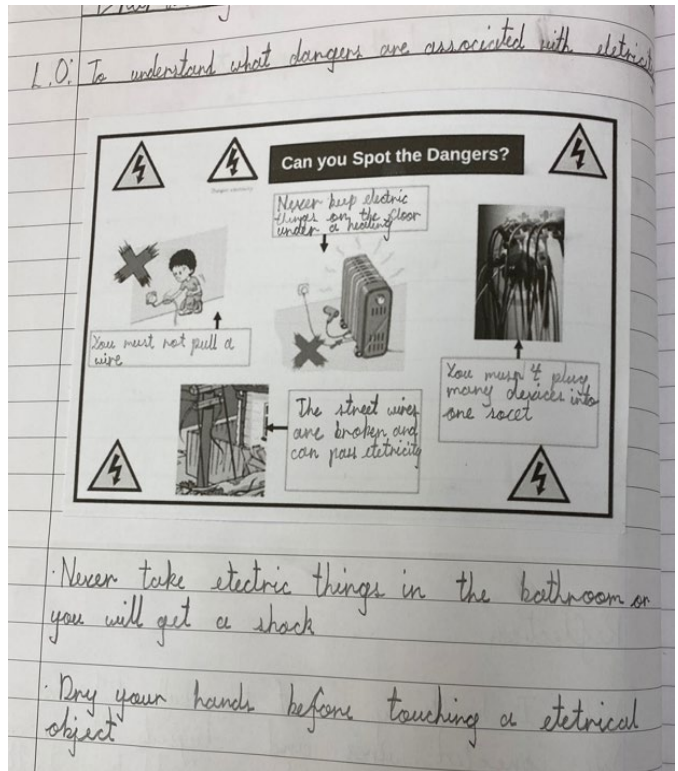 L.O: To understand what dangers are associated with eletricit
Can you Spot the Dangers?
Danger electricity
Never keep electric
things on the floor
under a heating
You must not pull a
wire
You musn't plug
many devices into
one socet
The street wires
are broken and
can pass eletricity
· Never take electric things in the bathroom or
you will get a shock
· Dry your hands before touching a eletrical
object